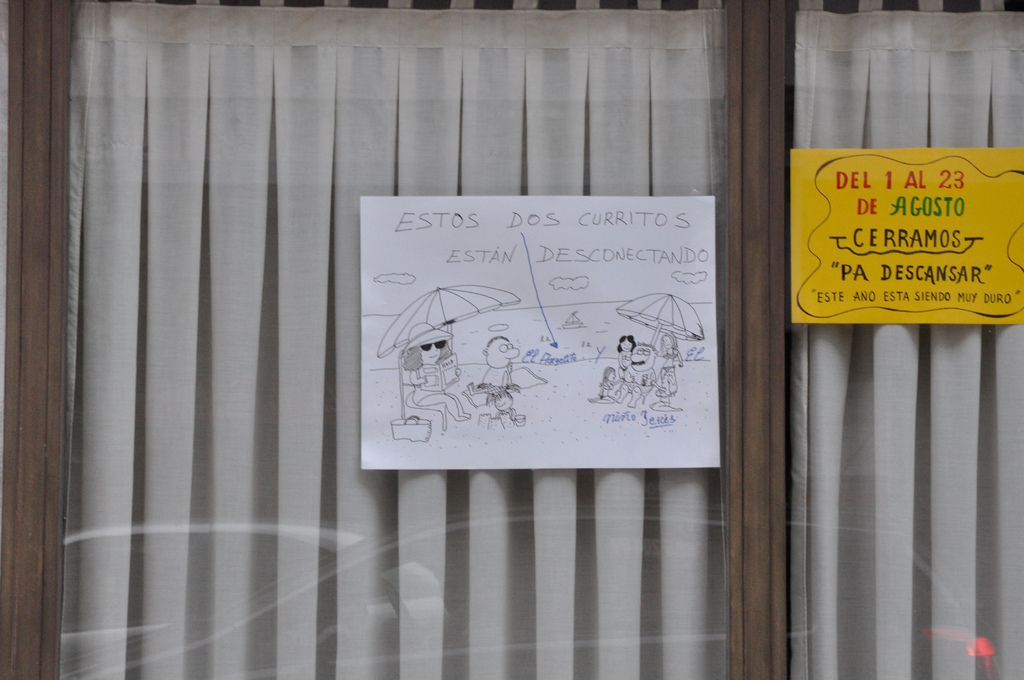 ESTOS DOS CURRITOS
ESTÁN DESCONECTANDO
El Y EL
niño Jesús
DEL 1 AL 23
DE AGOSTO
CERRAMOS
"PA DESCANSAR"
"ESTE AÑO ESTA SIENDO MUY DURO"